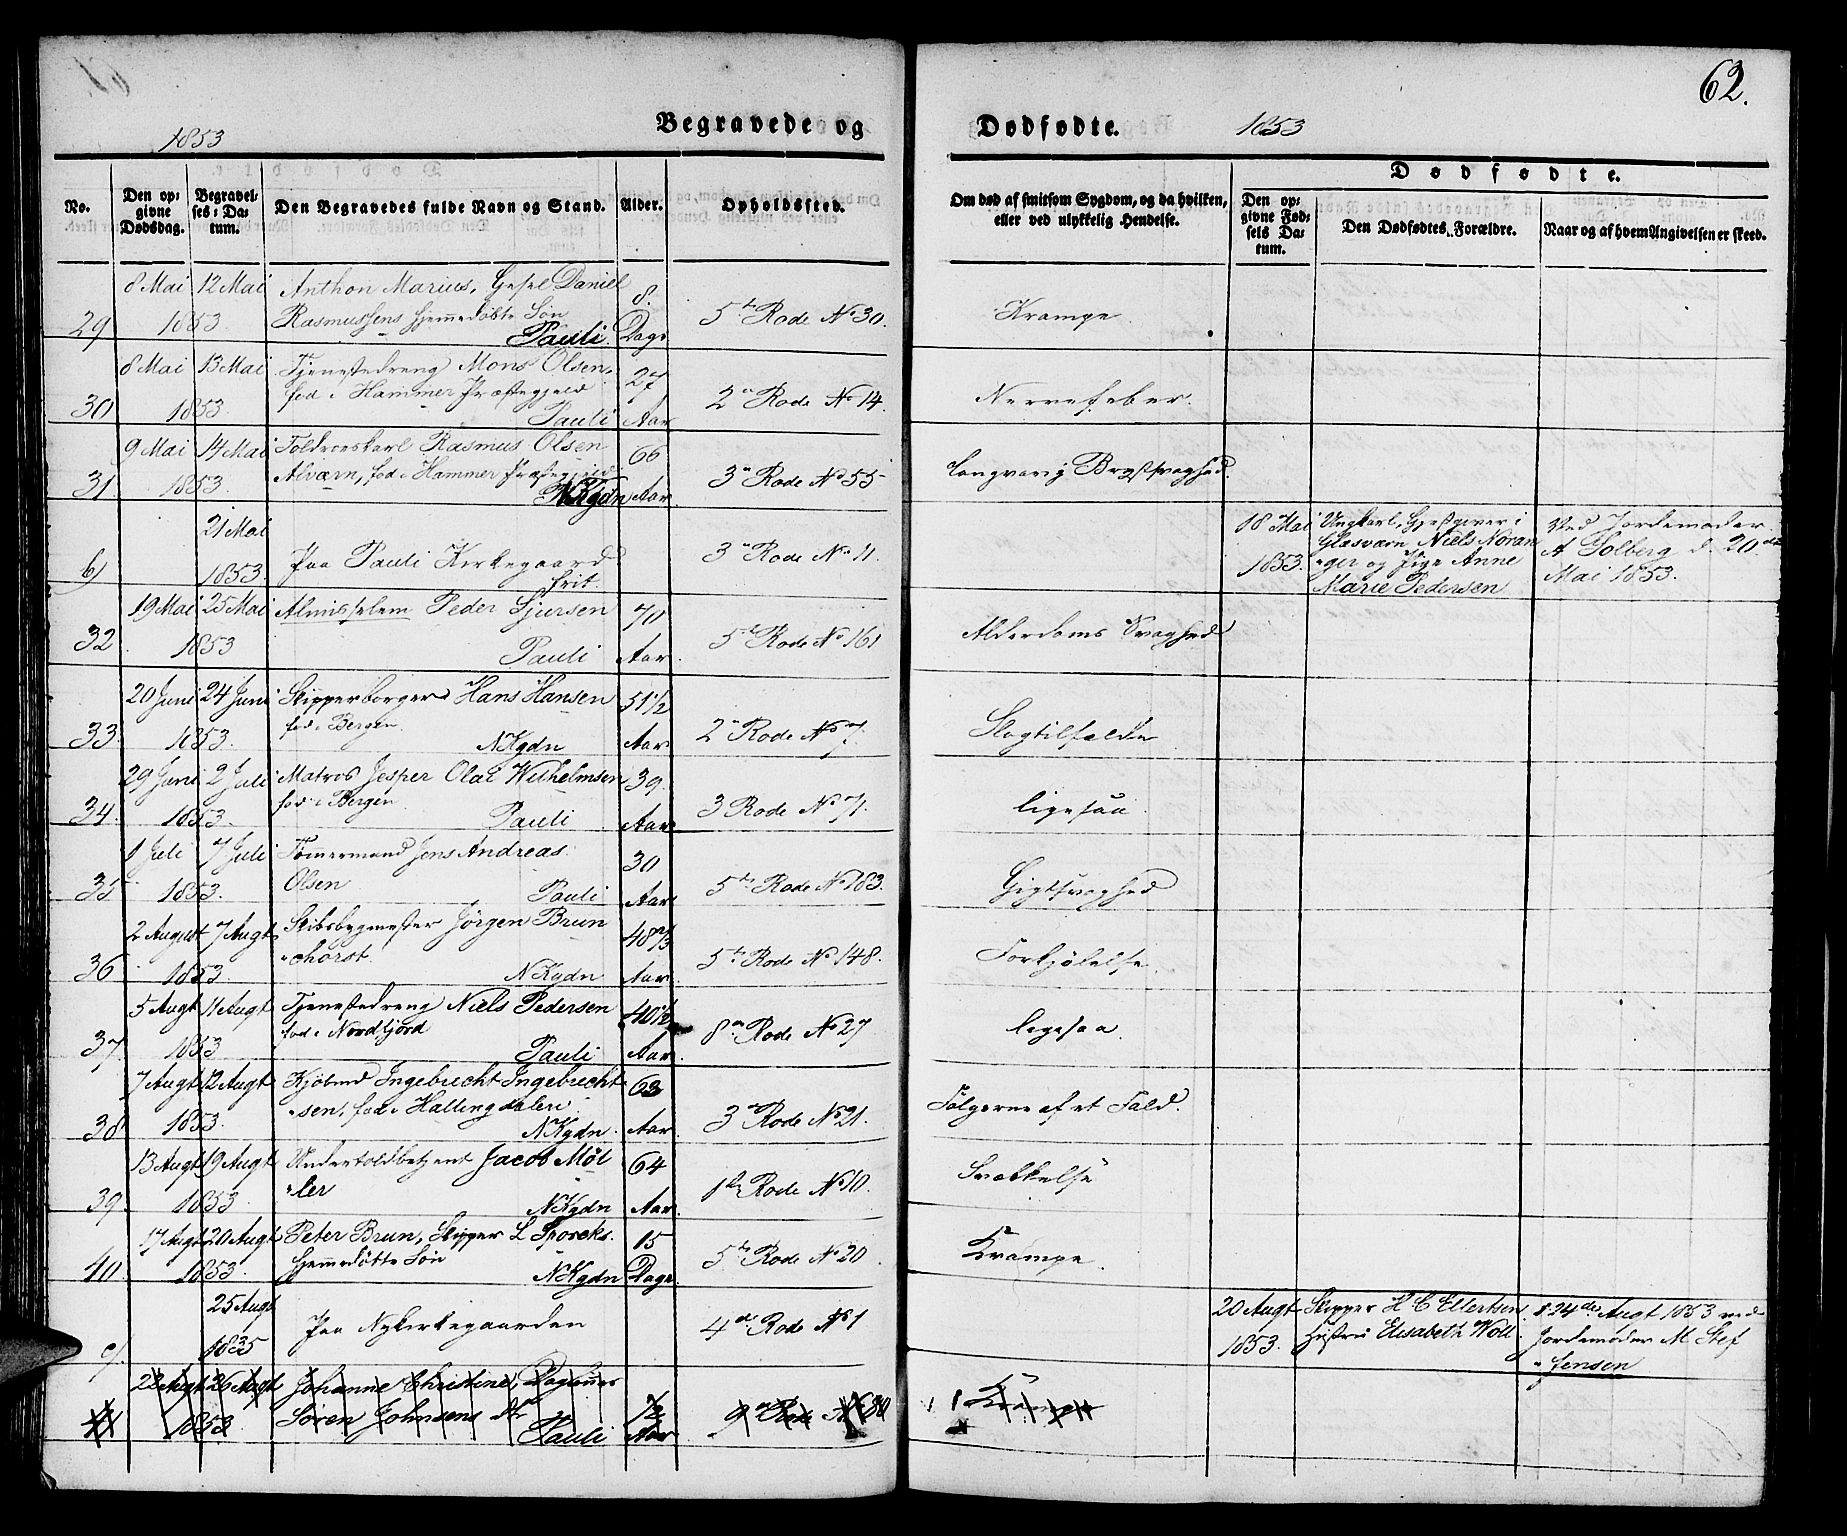 62.
1853
Begravede og
Dødfødte.
1853
No.
Den op-
givne
Dødsdag.
Begravel-
ses-Da-
tum.
Den Begravedes fulde Navn og Stand.
Alder.
Opholdssted.
Om død af smitsom Sygdom, og da hvilken,
eller ved ulykkelig Hendelse.
Dødfødte.
Den op-
givne Fød-
sels Da-
tum.
Den Dødfødtes Forældre.
Naar og af hvem Angivelsen er skeed.
29 8 Mai 12 Mai 1853.
Anthon Marius, Gesel Daniel
Rasmussens hjemmedøbte Søn
Pauli
8. Dage
5te Rode No 30.
Krampe.
30 8 Mai 13 Mai 1853.
Tjenestedreng Mons Olsen,
fød i Hammer Præstegjeld
Pauli
27 Aar
2n Rode No 14.
Nervefeber.
31 9 Mai 14 Mai 1853.
Toldroerskarl Rasmus Olsen
Alværn, fød i Hammer Præstegjeld
NKgdn
66 Aar
3n Rode No 55
Langvarig Brystsvaghed.
6) 21 Mai 1853.
Paa Pauli Kirkegaard
frit.
3n Rode No 11.
18 Mai 1853.
Ungkarl, Gjestgiver i
Glasværn Niels Noran
ger og Pige Anne
Marie Pedersen
Ved Jordemoder
A Solberg d. 20de
Mai 1853.
32 19 Mai 25 Mai 1853
Almisselem Peder Sjursen
Pauli
70 Aar.
5te Rode No 161
Alderdoms Svaghed
33. 20 Juni 24 Juni 1853.
Skipperborger Hans Hansen
fød i Bergen.
NKgdn
51 1/2 Aar
2n Rode No 7.
Slagtilfælde
34. 29 Juni 2 Juli 1853.
Matros Jesper Olai Wilhelmsen
fød i Bergen
Pauli
39. Aar
3 Rode No 71.
ligesaa.
35 1 Juli 7 Juli 1853.
Tømmermand Jens Andreas
Olsen
Pauli
30 Aar
5te Rode No 183.
Gigtsvaghed
36 2 August 7 Augt 1853.
Skibsbygmester Jørgen Brun
chorst.
NKgdn
48 Aar
5te Rode No 148.
Forkjølelse.
37 5 Augt 11 Augt 1853
Tjenestedreng Niels Pedersen
fød i Nordfjord
Pauli
40 1/2 Aar.
8n Rode No 27
ligesaa.
38 7 Augt 12 Augt 1853.
Kjøbmd Ingebrecht Ingebrecht
sen, fød i Hallingdalen
NKgdn.
63 Aar.
3n Rode No 21.
Følgerne af et Fald.
39. 13 Augt 19 Augt 1853.
Undertoldbetjent Jacob Møl
ler
NKgdn
64 Aar.
1te Rode No 10.
Svækkelse
40. 17 Augt 20 Augt 1853.
Peter Brun, Skipper L Sporcks.
hjemmedøbte Søn
NKgdn
15 Dage
5te Rode No 20
Krampe.
25 Augt 1835
Paa Nykirkegaarden
4de Rode No 1
20 Augt 1853.
Skipper H C Ellertsen
Hustru Elisabeth Woll
d 24de Augt 1853 ved
Jordemoder M Stef
fensen
41 22 Augt 26 Augt 1853
Johanne Christine, Dagleier
Søren Johnsens Dr
Pauli
1/2 Aar
9n Rode No 80
Krampe